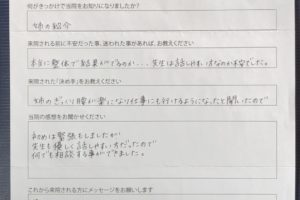 何がきっかけで当院をお知りになりましたか?
姉の紹介
来院される前に不安だった事、迷われた事があれば、お教えください
本当に整体で結果がでるのか...、先生は話しやすい方なのか不安でした。
来院された「決め手」をお教えください
姉のぎっくり腰が楽になり仕事にも行けるようになったと聞いたので
当院の感想をお聞かせください
初めは緊張もしましたが
先生も優しく話しやすい方だったので
何でも相談する事ができました。
これから来院される方にメッセージをお願いします